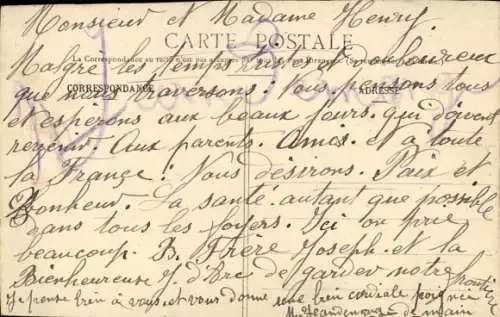 Monsieur et Madame Henry.
CARTE POSTALE
Malgré les temps tristes et malheureux
La Correspondance au recto n'est pas
CORRESPONDANCE
ADRESSE
que nous traversons : Nous pensons tous
et espérons aux beaux jours. qui doivent
revenir. Aux parents. Amis. et à toute
la France : Nous désirons. Paix et
Bonheur. La santé autant que possible
dans tous les foyers. Ici on prie
beaucoup. B. Frère Joseph et la
Bienheureuse J. d'Arc de garder notre
Je pense bien à vous et vous donne une bien cordiale poignée
de main